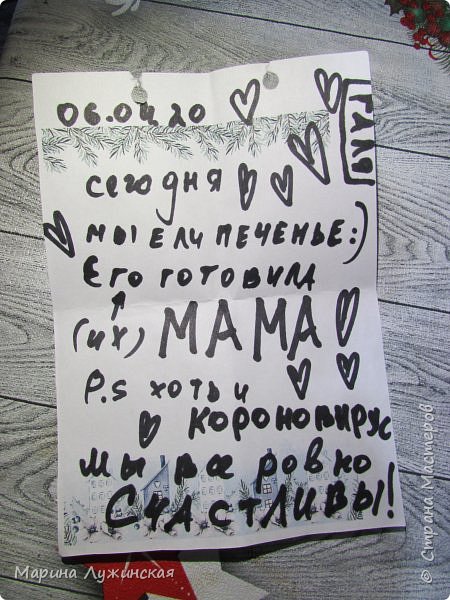 06.04.20
ГАЛЯ
сегодня
мы ели печенье:)
Его готовила
(их) МАМА
P.s хоть и
короновирус
мы все ровно
Счастливы!
Марина Лужинская
© Страна Мастеров